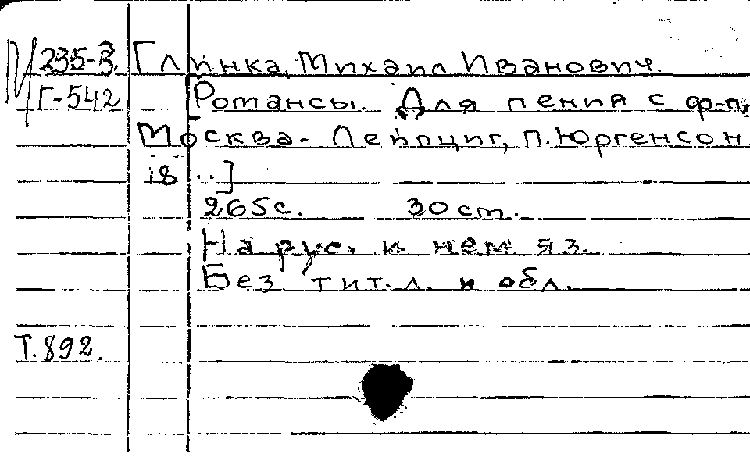 М 235-3 Глинка, Михаил Иванович.
Г-542 [Романсы. Для пения с ф-п.
Москва - Лейпциг, П. Юргенсон
18 ..]
265 с. 30 см.
На рус. и нем яз.
Без тит. л. и обл.
Т.892.